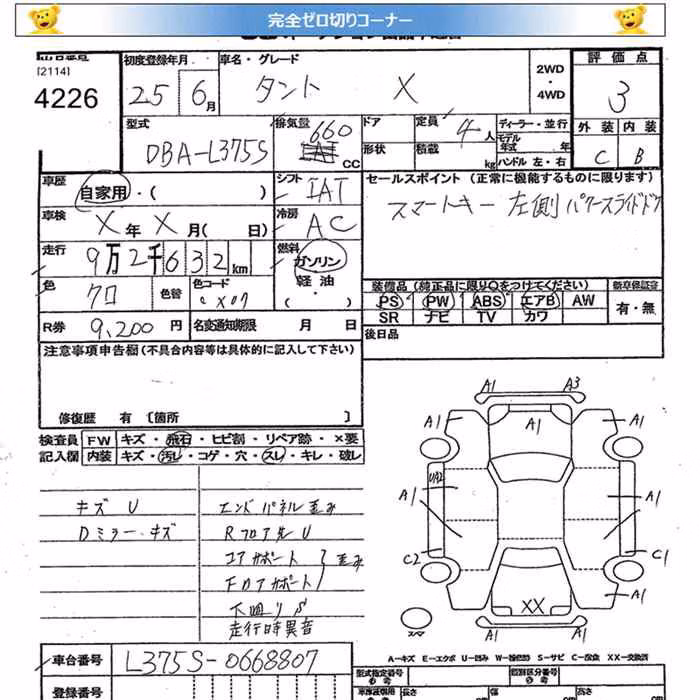 完全ゼロ切りコーナー
[2114]
4226
初度登録年月 車名・グレード
25 6月 タント X
2WD
・
4WD
評価点
3
外装 内装
C B
型式 排気量 ドア 定員 ディーラー・並行
DBA-L375S 660 CC 4人 モデル年式 年
形状 積載 kg ハンドル 左・右
車歴 自家用・( ) シフト IAT
セールスポイント (正常に機能するものに限ります)
スマートキー 左側 パワースライドドア
車検 X年X月( 日) 冷房 AC
走行 9万2千632km 燃料 ガソリン
軽油
・( )
色 クロ 色替 色コード X07
装備品 (純正品に限り○をつけてください) 新車保証書
PS PW ABS エアB AW 有・無
SR ナビ TV カワ
R券 9,200円 名変通知期限 月 日
後日品
注意事項申告欄 (不具合内容等は具体的に記入して下さい)
修復歴 有 [箇所 ]
検査員 FW キズ・飛石・ヒビ割・リペア跡・×要
記入欄 内装 キズ・汚れ・コゲ・穴・スレ・キレ・破レ
キズ U エンドパネル歪み
Dミラー・キズ Rフロア先U
コアサポート
歪み
Fロアサポート
下廻りS
走行時異音
A1 A3
A1 A1 A1
UA2
A1 A1
C2 C1
A1
XX
A1 A1
A-キズ E-エクボ U-凹み W-補修跡 S-サビ C-腐食 XX-交換済
車台番号 L375S-0668807
型式指定番号 類別区分番号
登録番号
長さ 幅 高さ